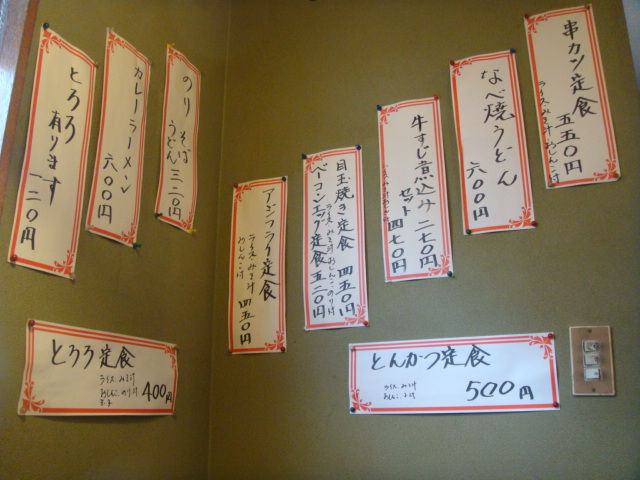 とろろ有ります 一二〇円
カレーラーメン 六〇〇円
のり そば うどん 三二〇円
アジフライ定食 四五〇円
ライス みそ汁
おしんこ付
目玉焼き定食 四五〇円
ライス みそ汁 おしんこ のり付
ベーコンエッグ定食 五二〇円
牛すじ煮込み 二七〇円
セット 四七〇円
なべ焼うどん 六〇〇円
串カツ定食 五五〇円
ライス みそ汁 おしんこ付
とろろ定食
ライス みそ汁
おしんこ のり付
400円
とんかつ定食
ライス みそ汁
500円